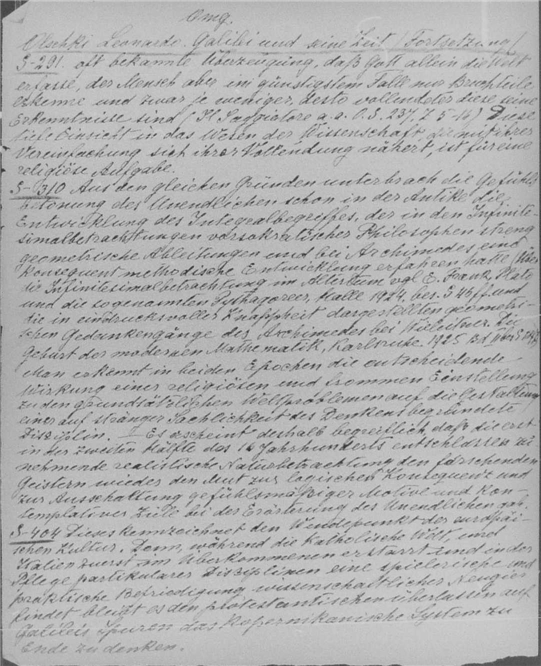 Omg.
Olschki Leonardo. Galilei und seine Zeit (Fortsetzung)
S-291. alt bekannte Überzeugung, daß Gott allein die Welt
erfasse, der Mensch aber im günstigstem Falle nur Bruchteile
erkenne und zwar je weniger, desto vollendeter diese seine
Erkenntnise sind (Il Saggiatore a.a.O.S. 237, Z 5-16) Diese
tiefe Einsicht in das Wesen der Wissenschaft die mit ihrer
Vereinfachung sich ihrer Vollendung nähert, ist für eine
religiöse Aufgabe.
S-310 Aus den gleichen Gründen unterbrach die Gefühls
betonung des Unendlichen schon in der Antike die
Entwicklung des Integralbegriffes, der in den Infinite-
simalbetrachtungen vorsokratischer Philosophen streng
geometrische Ableitungen und bei Archimedes eine
Konsequent methodische Entwicklung erfahren hatte (Über
die Infinitesimalbetrachtung im Altertum vgl E. Frank, Plato
und die sogenannten Pythagoreer, Halle 1924, bes. S 46ff und
die in eindrucksvoller Knappheit dargestellten geometri-
schen Gedankengänge des Archimedes bei Die
Geburt der modernen Mathematik, Karlsruhe 1925
Man erkennt in beiden Epochen die entscheidende
Wirkung einer religiösen und frommen Einstellung
zu den grundsätzlichen Weltproblemen auf die Gestaltung
einer auf stränger Sachlichkeit des Denkens begründete
Disziplin. Es erscheint deshalb begreiflich daß die erst
in der zweiten Hälfte des 16 Jahrhunderts entschlossen zu
nehmende realistische Naturbetrachtung den forschenden
Geistern wieder den Mut zur logischen Konsequenz und
zur Ausschaltung gefühlsmäßiger Motive und kon-
templativer Ziele bei der Erörterung des Unendlichen
S-404 Dieses kennzeichnet den Wendepunkt der europäi-
schen Kultur. Denn, während die Katholische Welt, und
Italien zuerst am Überkommenen erstarrt und in der
Pflege partikularer Disziplinen eine spielerische und
praktische Befriedigung wissenschaftlicher Neugier
findet bleibt es den protestantischen überlassen auf
Galileis Spuren das Kopernikanische System zu
Ende zu denken.